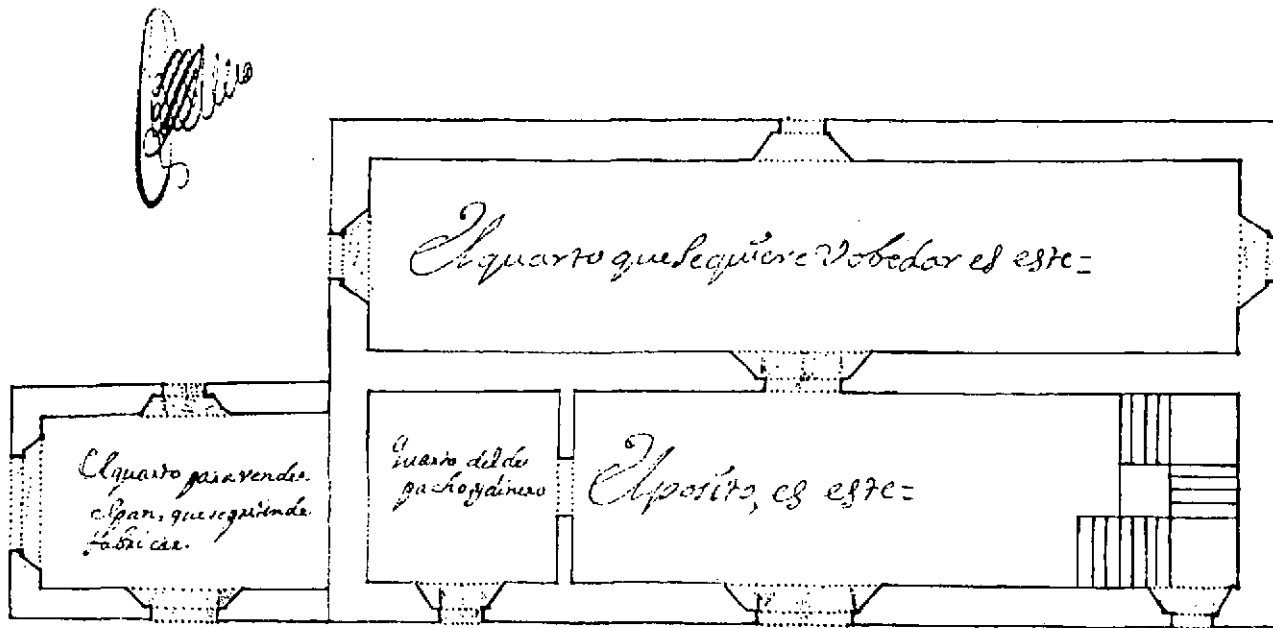 El quarto que se quiere Vobedar es este=
El quarto para vender
el pan, que se pretende
fabricar.
Quarto del des
pacho, y dinero
El posito, es este=